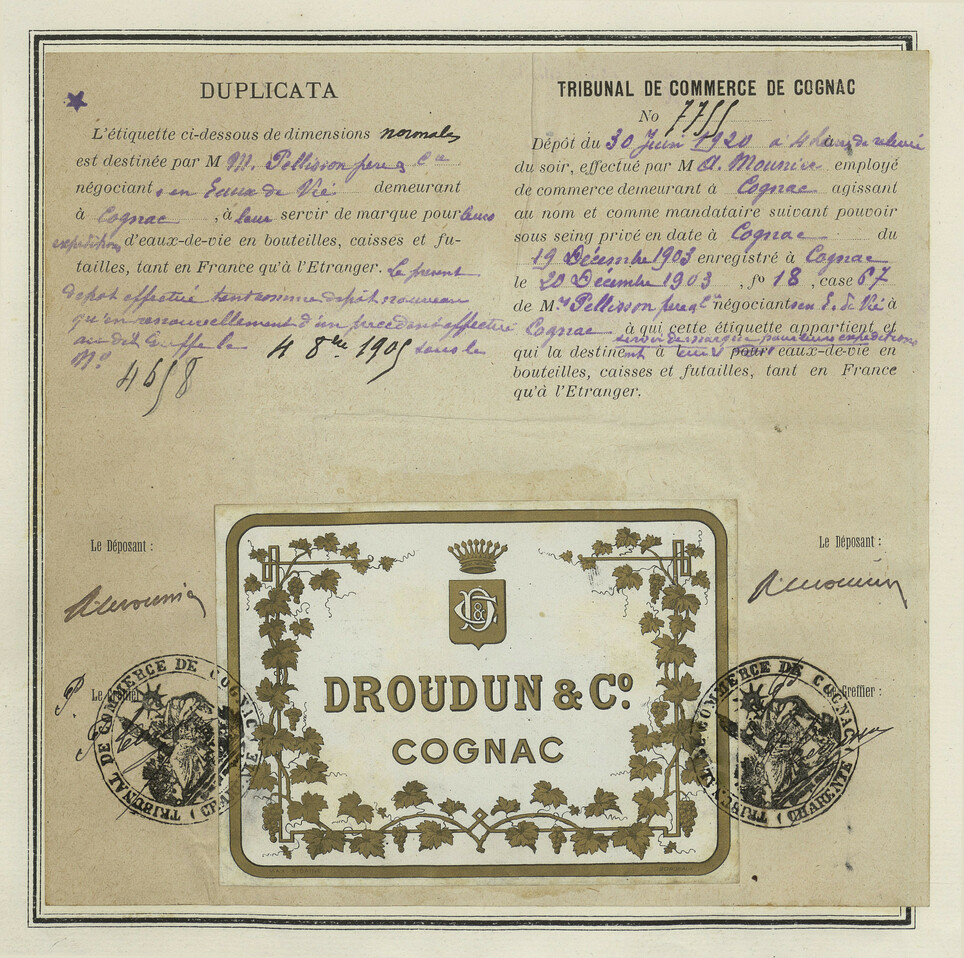 DUPLICATA
L'étiquette ci-dessous de dimensions normales
est destinée par M M. Pellisson pere & Cie
négociants en Eaux de Vie demeurant
à Cognac, à leur servir de marque pour leurs
expeditions d'eaux-de-vie en bouteilles, caisses et fu-
tailles, tant en France qu'à l'Etranger. Le present
depot effectué tant comme depôt nouveau
qu'en renouvellement d'un precedent effectué
au dit Greffe le 4 8bre 1905 sous le
No 4658
TRIBUNAL DE COMMERCE DE COGNAC
No 7755
Dépôt du 30 Juin 1920 à 4 heures de relevée
du soir, effectué par M A. Mounier employé
de commerce demeurant à Cognac agissant
au nom et comme mandataire suivant pouvoir
sous seing privé en date à Cognac du
19 Décembre 1903 enregistré à Cognac
le 20 Décembre 1903, fo 18, case 67
de M. Pellisson pere & Cie négociants en E. de Vie à
Cognac à qui cette étiquette appartient et
servir de marque pour leurs expeditions
qui la destinent à leur pour eaux-de-vie en
bouteilles, caisses et futailles, tant en France
qu'à l'Etranger.
Le Déposant :
Le Déposant :
Le Greffier
Le Greffier :
TRIBUNAL DE COMMERCE DE COGNAC (CHARENTE)
TRIBUNAL DE COMMERCE DE COGNAC (CHARENTE)
D&C
DROUDUN & Co.
COGNAC